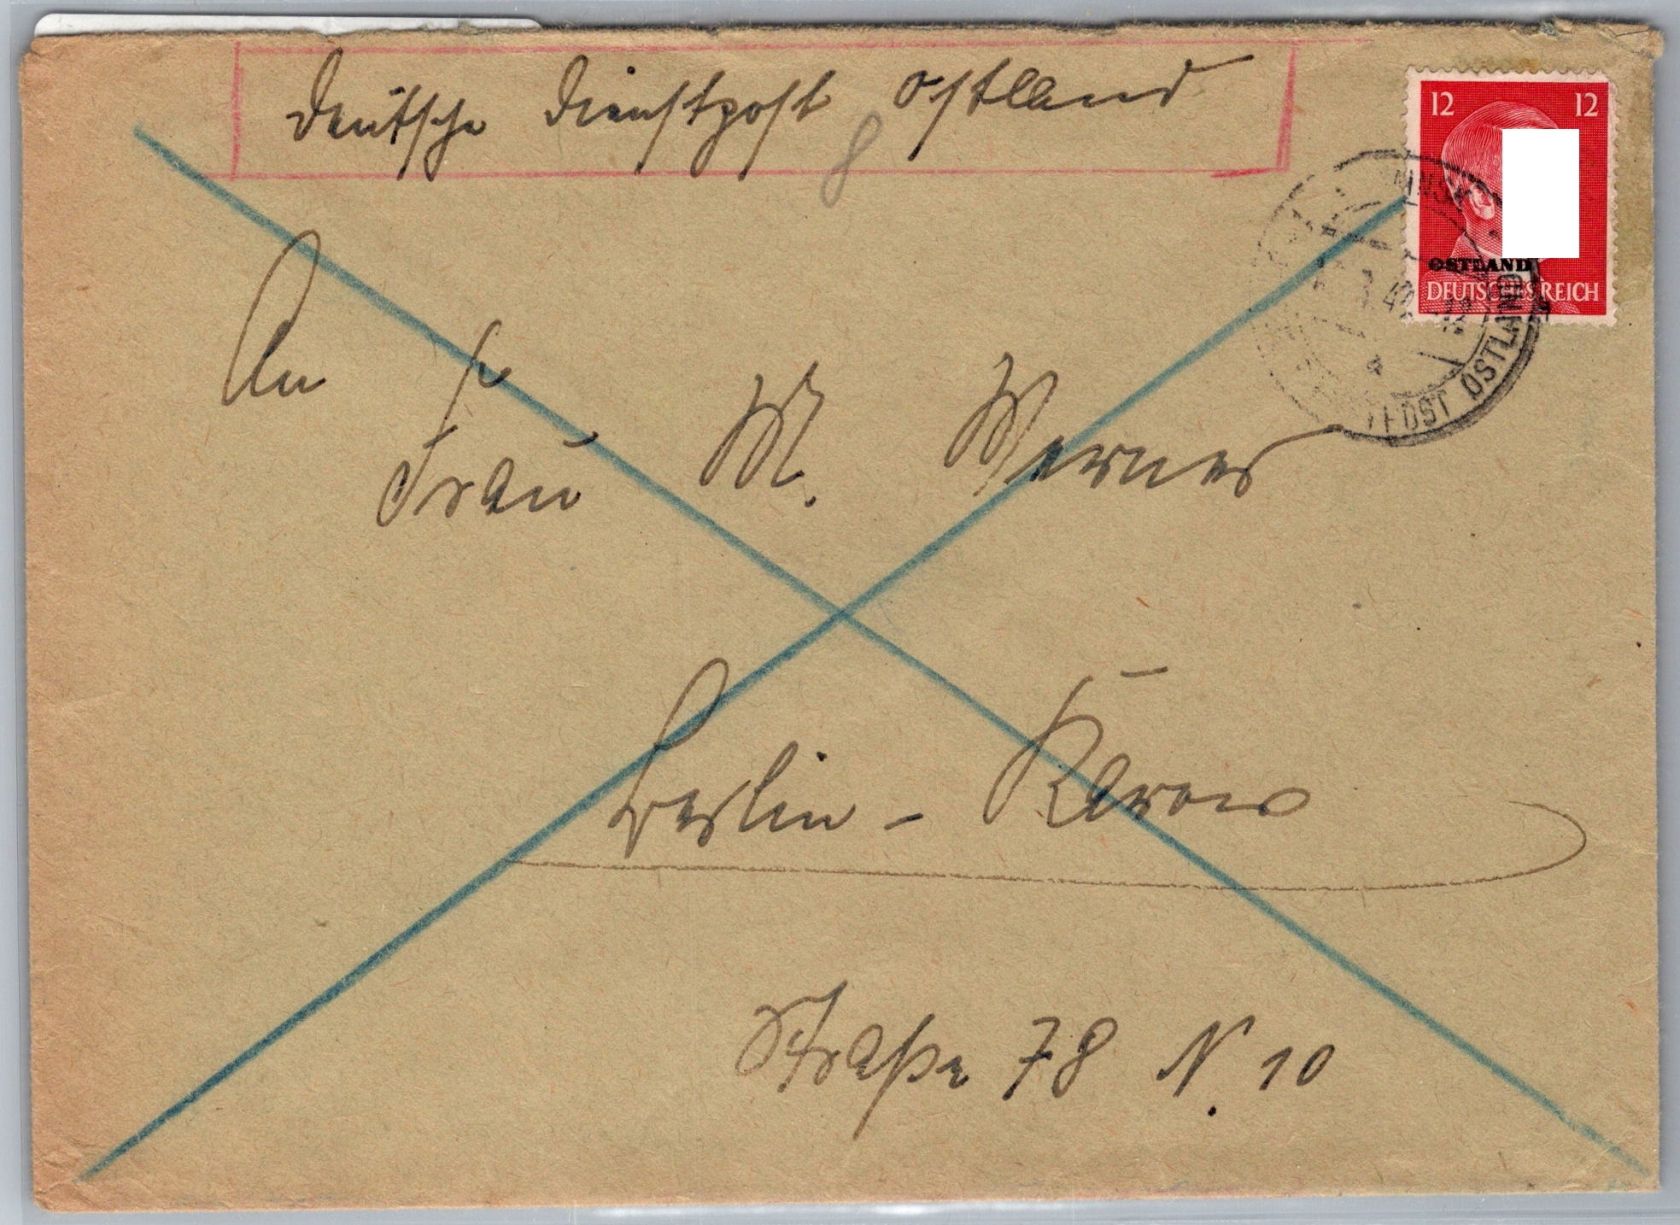 Deutsche Dienstpost Ostland
8
12 12
OSTLAND
DEUTSCHES REICH
MINSK
42
POST OSTLAND
a
An
Frau M. Werner
Berlin - Karow
Straße 78 N. 10